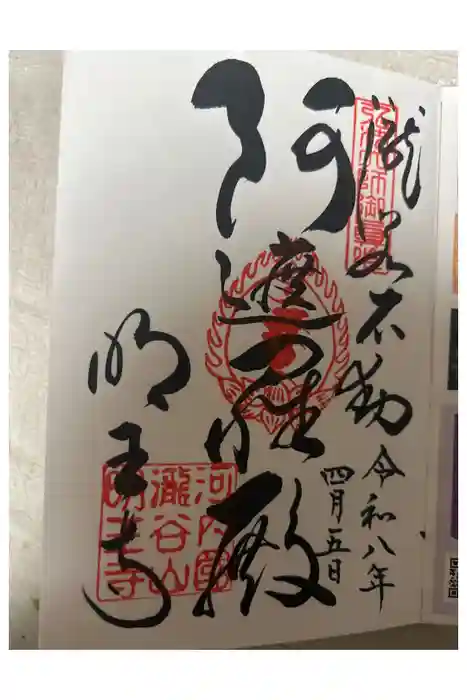 瀧谷不動
令和八年
四月五日
阿遮 殿
明王寺
弘法大師御
河内國
瀧谷山
明王寺